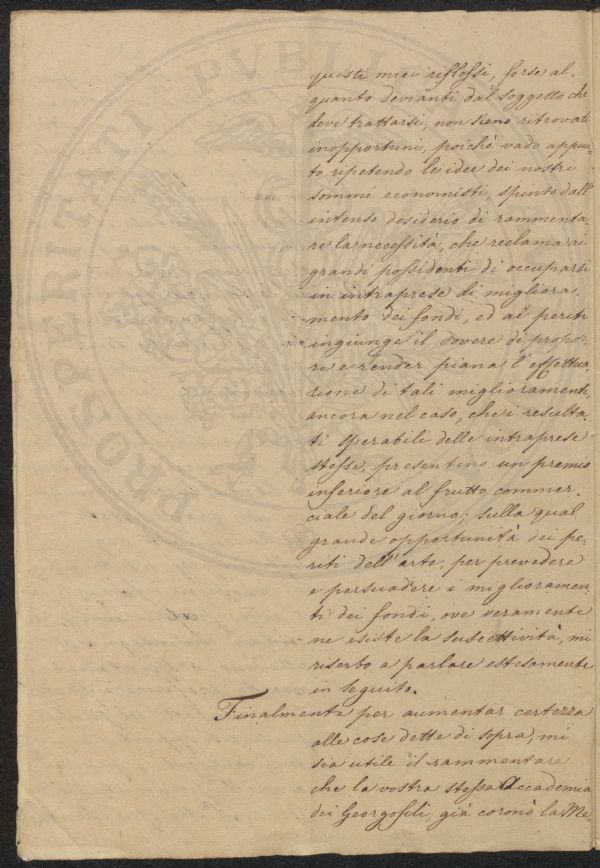 PROSPERITATI PVBLI
questi miei riflessi, forse al-
quanto devianti dal soggetto che
deve trattarsi, non sieno ritrovati
inopportuni, poichè vado appun-
to ripetendo le idee dei nostri
sommi economisti, spinto dall'
intenso desiderio di rammenta-
re la necessità, che reclama ai
grandi possidenti di occuparsi
in intraprese di migliora-
mento dei fondi, ed ai periti
ingiunge il dovere di propor-
re e render piana l'effettua-
zione di tali miglioramenti,
ancora nel caso, che i resulta-
ti sperabili delle intraprese
stesse, presentino un premio
inferiore al frutto commer-
ciale del giorno; sulla qual
grande opportunità dei pe-
riti dell'arte, per prevedere
e persuadere i migliora​men-
ti dei fondi, ove veramente
ne esiste la suscettività, mi
riserbo a parlare estesamente
in seguito.
Finalmente per aumentar certezza
alle cose dette di sopra, mi
sia utile il rammentare
che la vostra stessa Accademia
dei Georgofili, già coronò la Me-